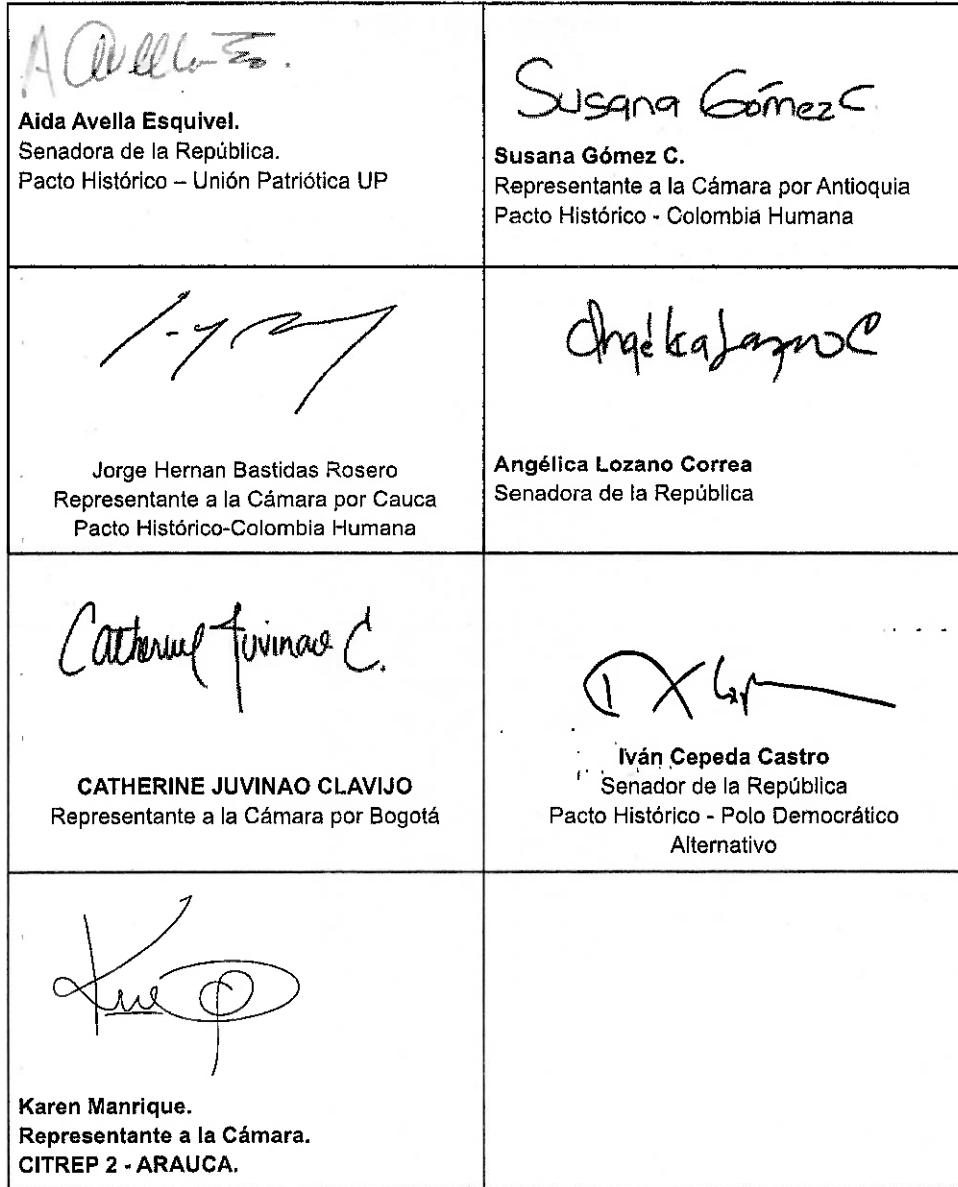 A Avella E.
Aida Avella Esquivel.
Senadora de la República.
Pacto Histórico – Unión Patriótica UP
Susana Gómez C
Susana Gómez C.
Representante a la Cámara por Antioquia
Pacto Histórico - Colombia Humana
Jorge Hernan Bastidas Rosero
Representante a la Cámara por Cauca
Pacto Histórico-Colombia Humana
Angélica Lozano C
Angélica Lozano Correa
Senadora de la República
Catherine Juvinao C.
CATHERINE JUVINAO CLAVIJO
Representante a la Cámara por Bogotá
Iván Cepeda Castro
Senador de la República
Pacto Histórico - Polo Democrático
Alternativo
Karen Manrique.
Representante a la Cámara.
CITREP 2 - ARAUCA.